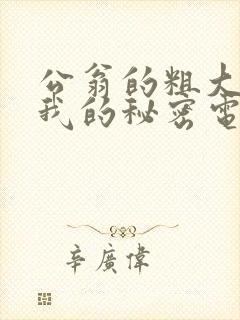 公翁的粗大
我的秘密電
辛廣偉